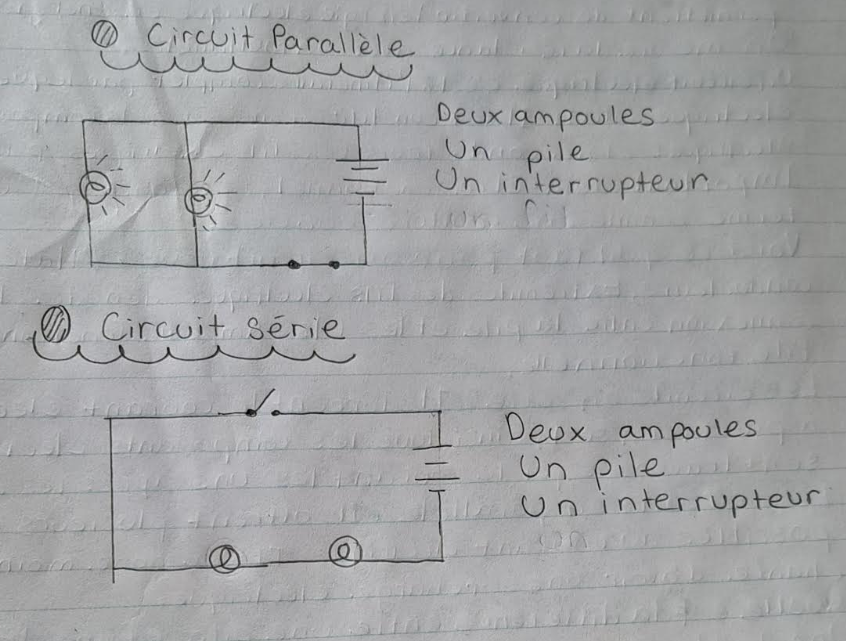 Circuit Parallèle
Deux ampoules
Un pile
Un interrupteur
Circuit série
Deux ampoules
Un pile
Un interrupteur